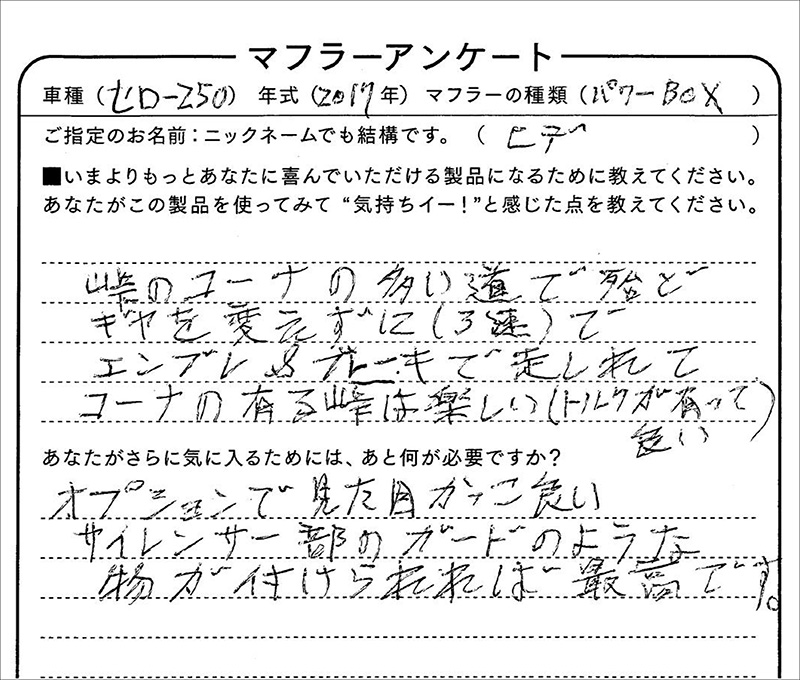 マフラーアンケート
車種（セロー250） 年式（2017年） マフラーの種類（パワーBOX ）
ご指定のお名前：ニックネームでも結構です。（ ヒデ ）
■いまよりもっとあなたに喜んでいただける製品になるために教えてください。
あなたがこの製品を使ってみて “気持ちイー！”と感じた点を教えてください。
峠のコーナの多い道で殆ど
ギヤを変えずに(3速)で
エンブレ&ブレーキで走しれて
コーナの有る峠は楽しい(トルクが有って
良い)
あなたがさらに気に入るためには、あと何が必要ですか？
オプションで見た目かっこ良い
サイレンサー部のガードのような
物が付けられれば最高です。